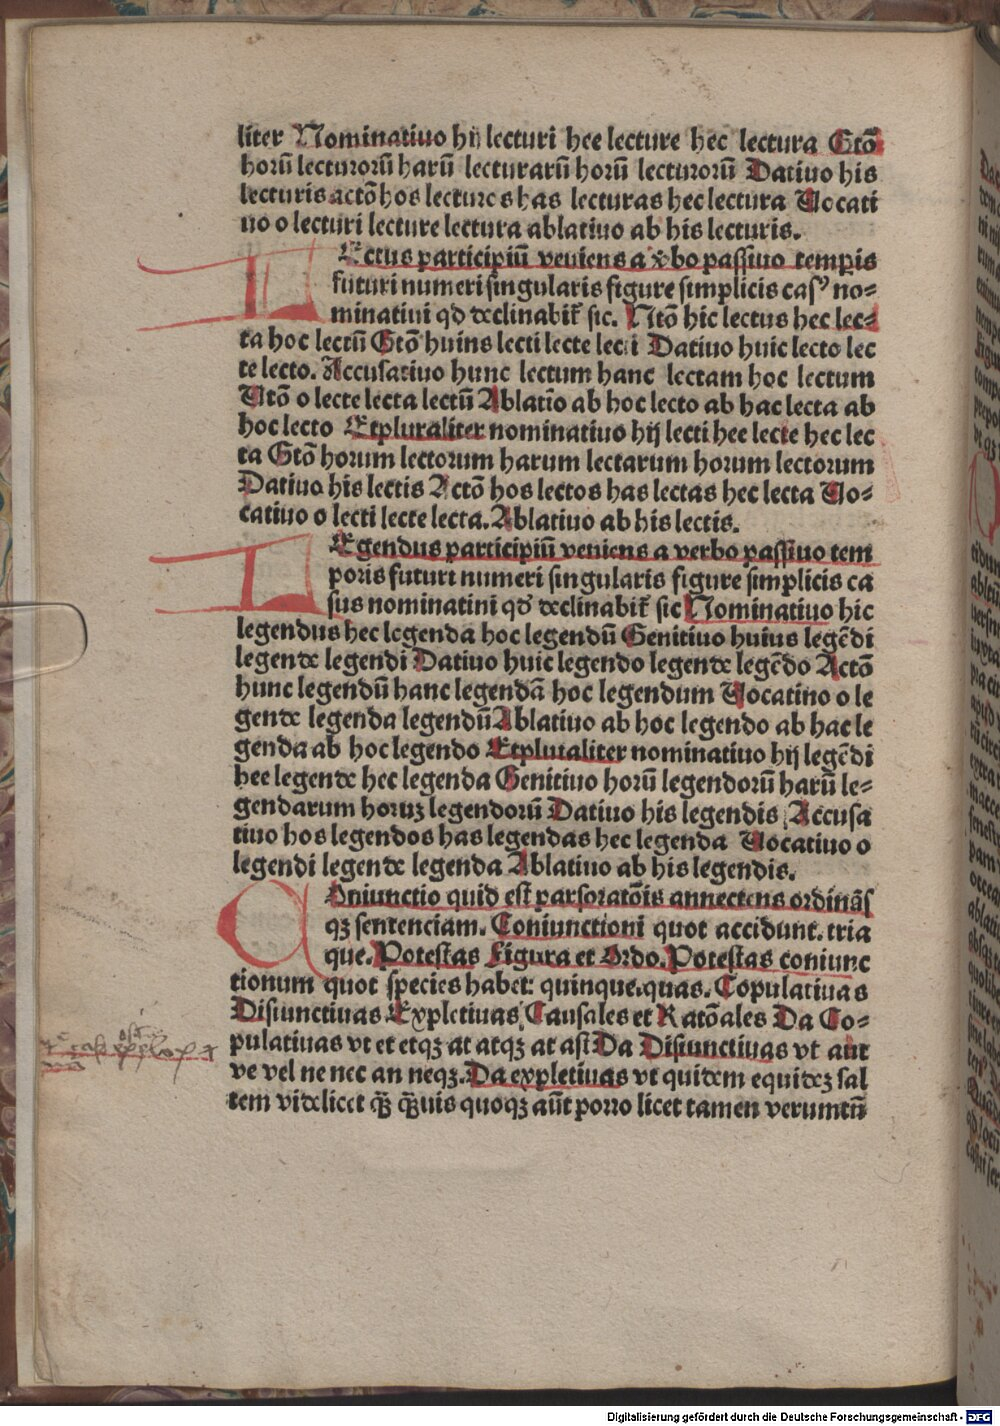 liter Nominatiuo hij lecturi hee lecture hec lectura Gtō
horū lecturorū harū lecturarū horū lecturorū Datiuo his
lecturis actō hos lecturos has lecturas hec lectura Uocati
uo o lecturi lecture lectura ablatiuo ab his lecturis.
LEctus participiū veniens a v̾bo passiuo temp̲is
futuri numeri singularis figure simplicis casꝰ no-
minatiui qd̕ declinabit̄ sic. Ntō hic lectus hec lec-
ta hoc lectū Gtō huius lecti lecte lecti Datiuo huic lecto lec
te lecto. Accusatiuo hunc lectum hanc lectam hoc lectum
Utō o lecte lecta lectū Ablatio ab hoc lecto ab hac lecta ab
hoc lecto Etpluraliter nominatiuo hij lecti hee lecte hec lec
ta Gtō horum lectorum harum lectarum horum lectorum
Datiuo his lectis Actō hos lectos has lectas hec lecta Uo-
catiuo o lecti lecte lecta. Ablatiuo ab his lectis.
LEgendus participiū veniens a verbo passiuo tem
poris futuri numeri singularis figure simplicis ca
sus nominatini qd̕ declinabit̄ sic Nominatiuo hic
legendus hec legenda hoc legendū Genitiuo huius legēdi
legende legendi Datiuo huic legendo legende legēdo Actō
hunc legendū hanc legendā hoc legendum Uocatino o le
gende legenda legendū Ablatiuo ab hoc legendo ab hac le
genda ab hoc legendo Etplutaliter nominatiuo hij legēdi
hee legende hec legenda Genitiuo horū legendorū harū le-
gendarum horuꝫ legendorū Datiuo his legendis Accusa
tiuo hos legendos has legendas hec legenda Uocatiuo o
legendi legende legenda Ablatiuo ab his legendis.
COniunctio quid est parsoratōis annectens ordinās
qꝫ sentenciam. Coniunctioni quot accidunt. tria
que. Potestas Figura et Ordo. Potestas coniunc
tionum quot species habet: quinque. quas. Copulatiuas
Disiunctiuas Expletiuas Causales et Ratōales Da Co-
pulatiuas vt et etqꝫ at atqꝫ at ast Da Disiunctiuas vt aut
ve vel ne nec an neqꝫ. Da expletiuas vt quidem equideꝫ sal
tem videlicet qꝫ qꝫuis quoqꝫ aūt porro licet tamen verumtn̄
Digitalisierung gefördert durch die Deutsche Forschungsgemeinschaft - DFG